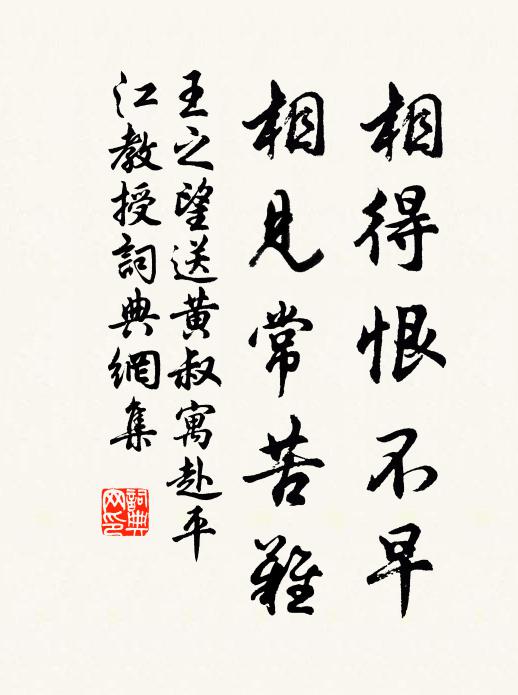 相得恨不早
相見常苦難
王之望送黄叔寓赴平
江教授詞典網集
詞典網印